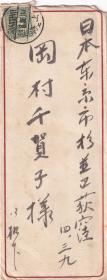 日本东京市杉並区荻窪
四ノ三九
岡村千賀子様